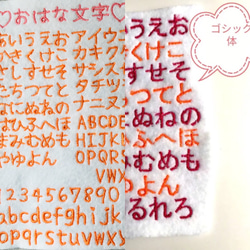 ♡おはな文字♡
あいうえお アイウ
かきくけこ カキク
さしすせそ サシス
たちつてと タチツ
なにぬねの ナニヌ
はひふへほ ABCDE
まみむめも HIJKL
やゆよん OPQRS
VWX
1234567890
abcdefghijk
opqrstuvwx
ゴシック
体
うえお
くけこ
すせそ
つてと
ぬねの
ふへほ
みむめも
よん
るれろ